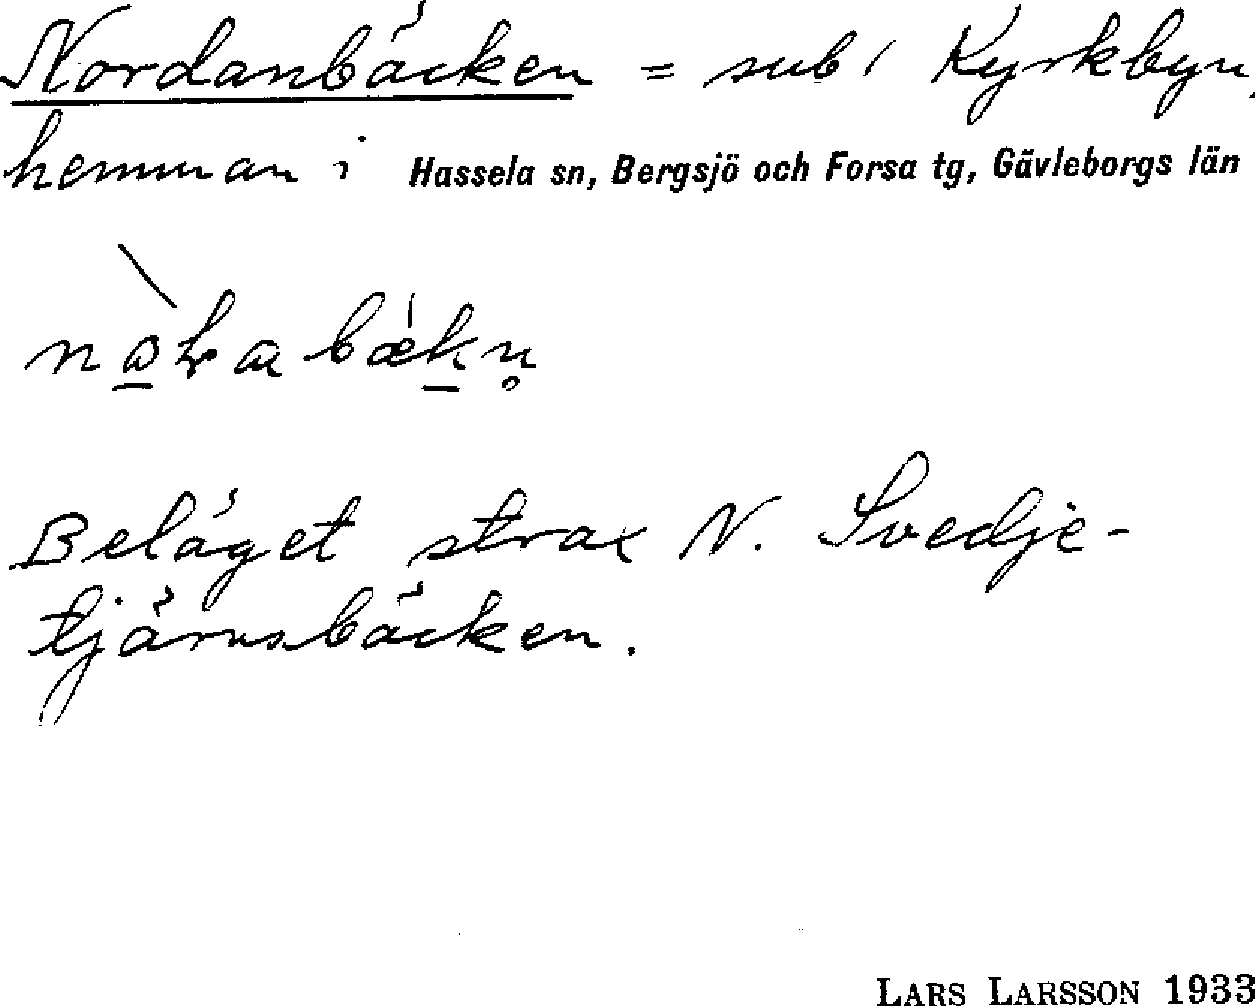 Nordanbäcken = sub i Kyrkbyn,
hemman i Hassela sn, Bergsjö och Forsa tg, Gävleborgs län
Beläget strax N. Svedje-
tjärnsbäcken.
LARS LARSSON 1933